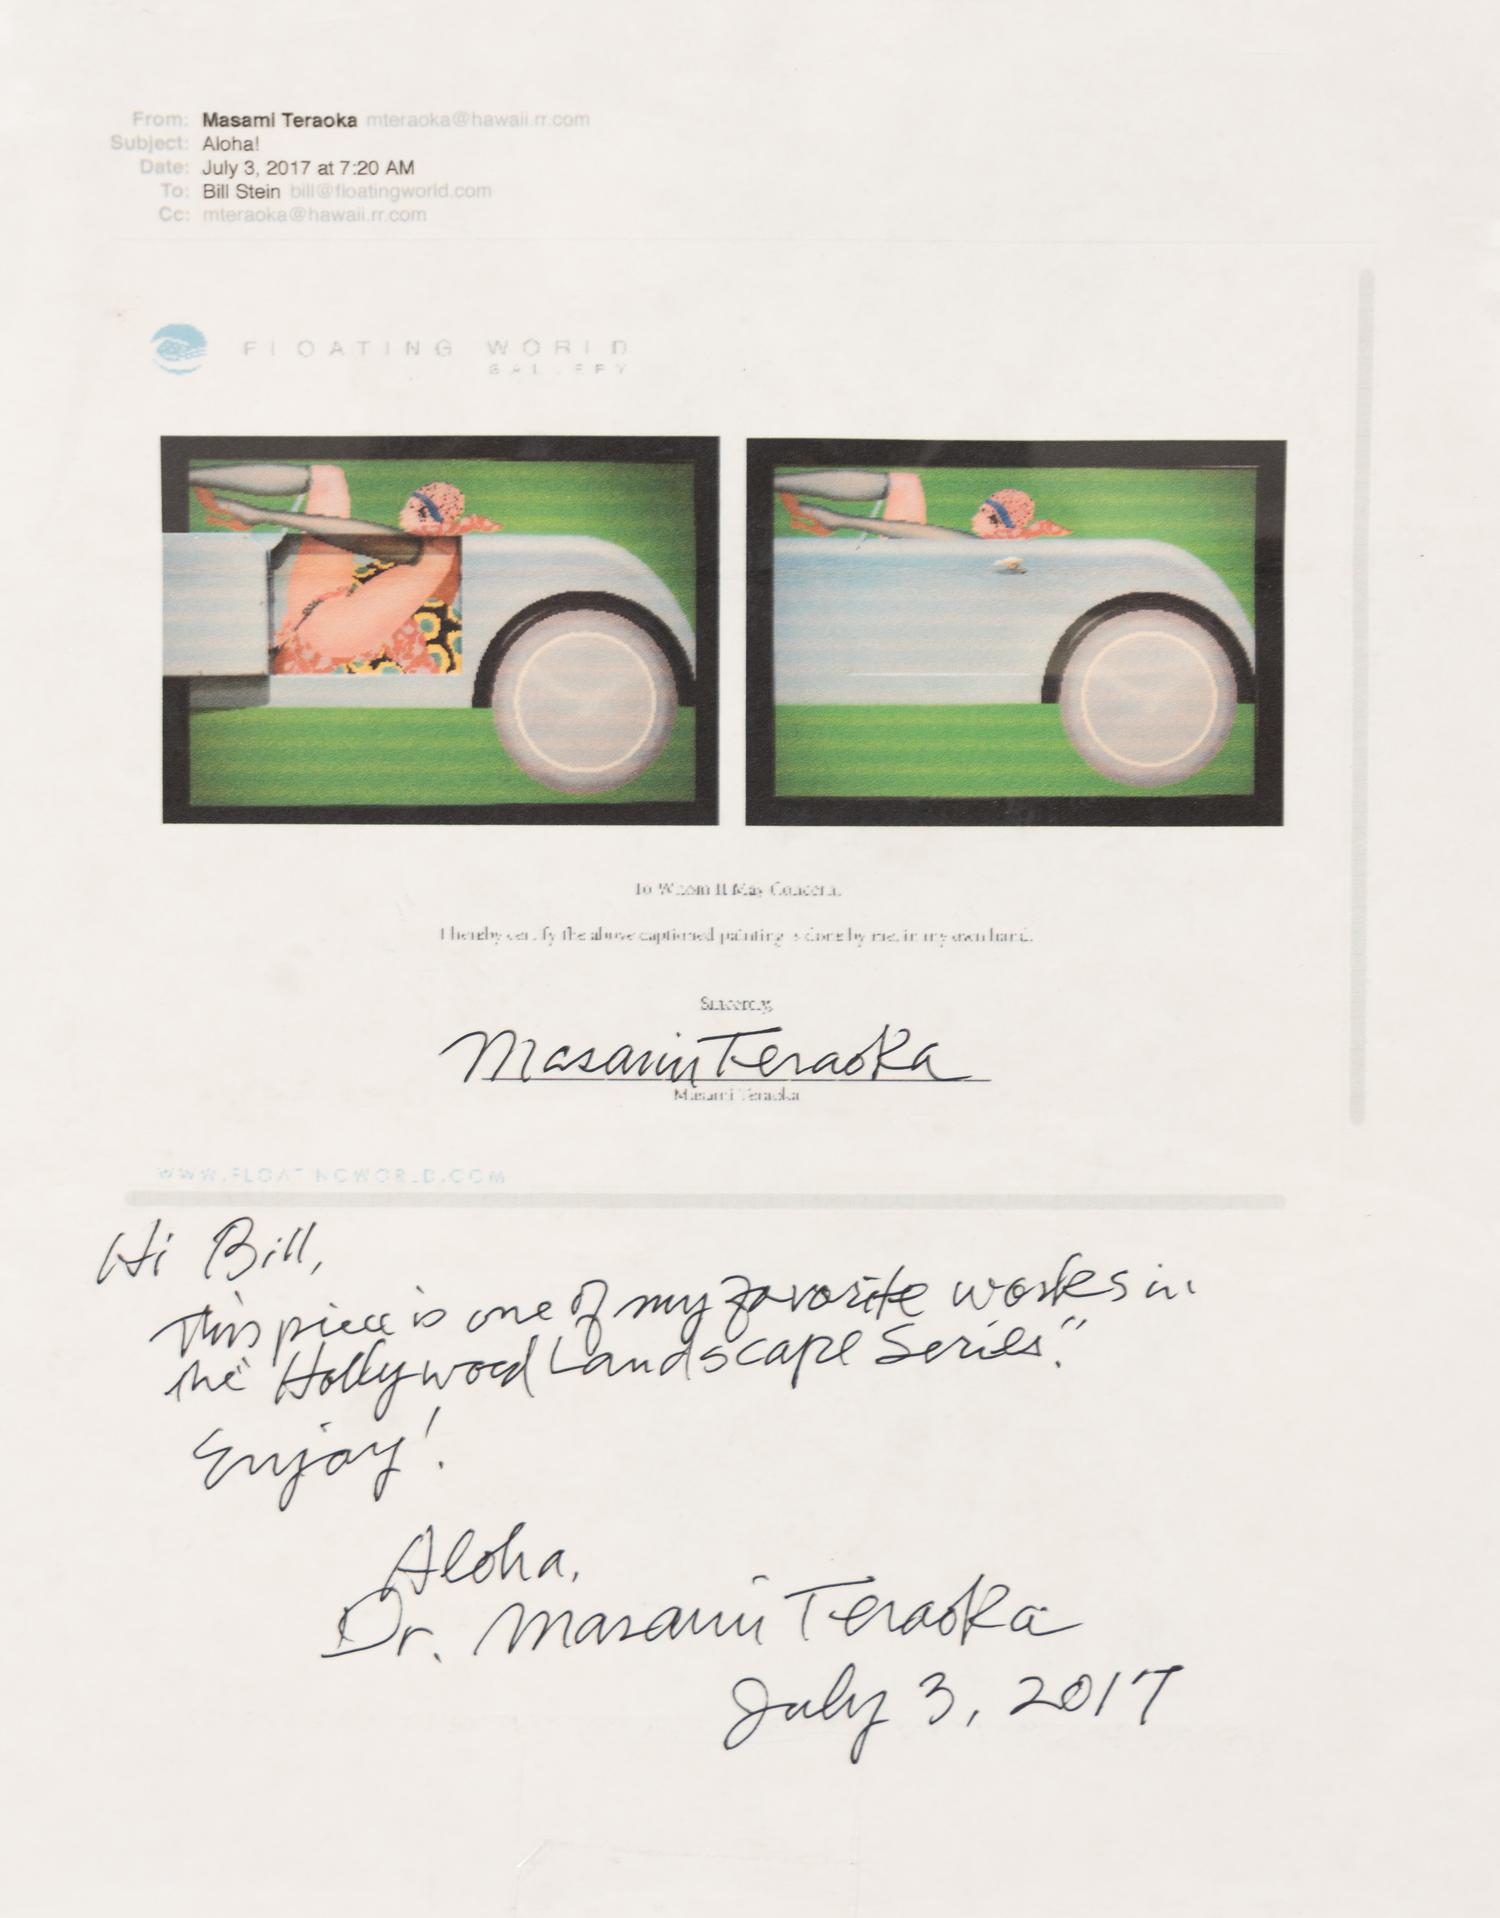 From: Masami Teraoka mteraoka@hawaii.rr.com
Subject: Aloha!
Date: July 3, 2017 at 7:20 AM
To: Bill Stein bill@floatingworld.com
Cc: mteraoka@hawaii.rr.com
FLOATING WORLD
GALLERY
To Whom It May Concern,
I hereby certify the above captioned painting is done by me, in my own hand.
Sincerely,
Masami Teraoka
Masami Teraoka
WWW.FLOATINGWORLD.COM
Hi Bill,
This piece is one of my favorite works in
the "Hollywood Landscape Series."
Enjoy!
Aloha,
Dr. Masami Teraoka
July 3, 2017